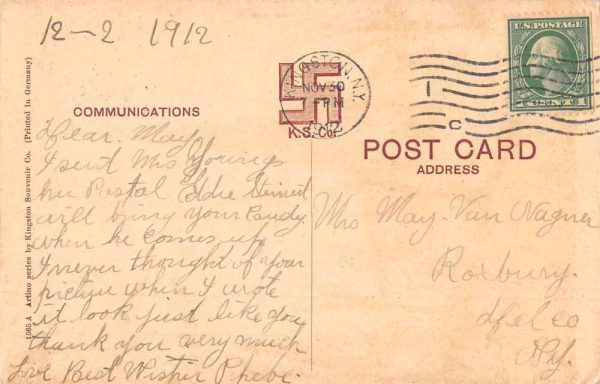 12-2 1912
U.S. POSTAGE
1 CENT 1
KINGSTON, N.Y.
NOV 30
-PM
1912
1
C
K.S. Co.
COMMUNICATIONS
POST CARD
ADDRESS
1565 A Artino series by Kingston Souvenir Co. (Printed in Germany)
Dear May
I sent Mrs Youngs
her Postal Eddie
will bring your Candy
when he comes up
I never thought of your
picture when I wrote
it look just like you
thank you very much
Love Best Wishes Phebe.
Mrs May Van Wagner
Roxbury.
Del co
N.Y.